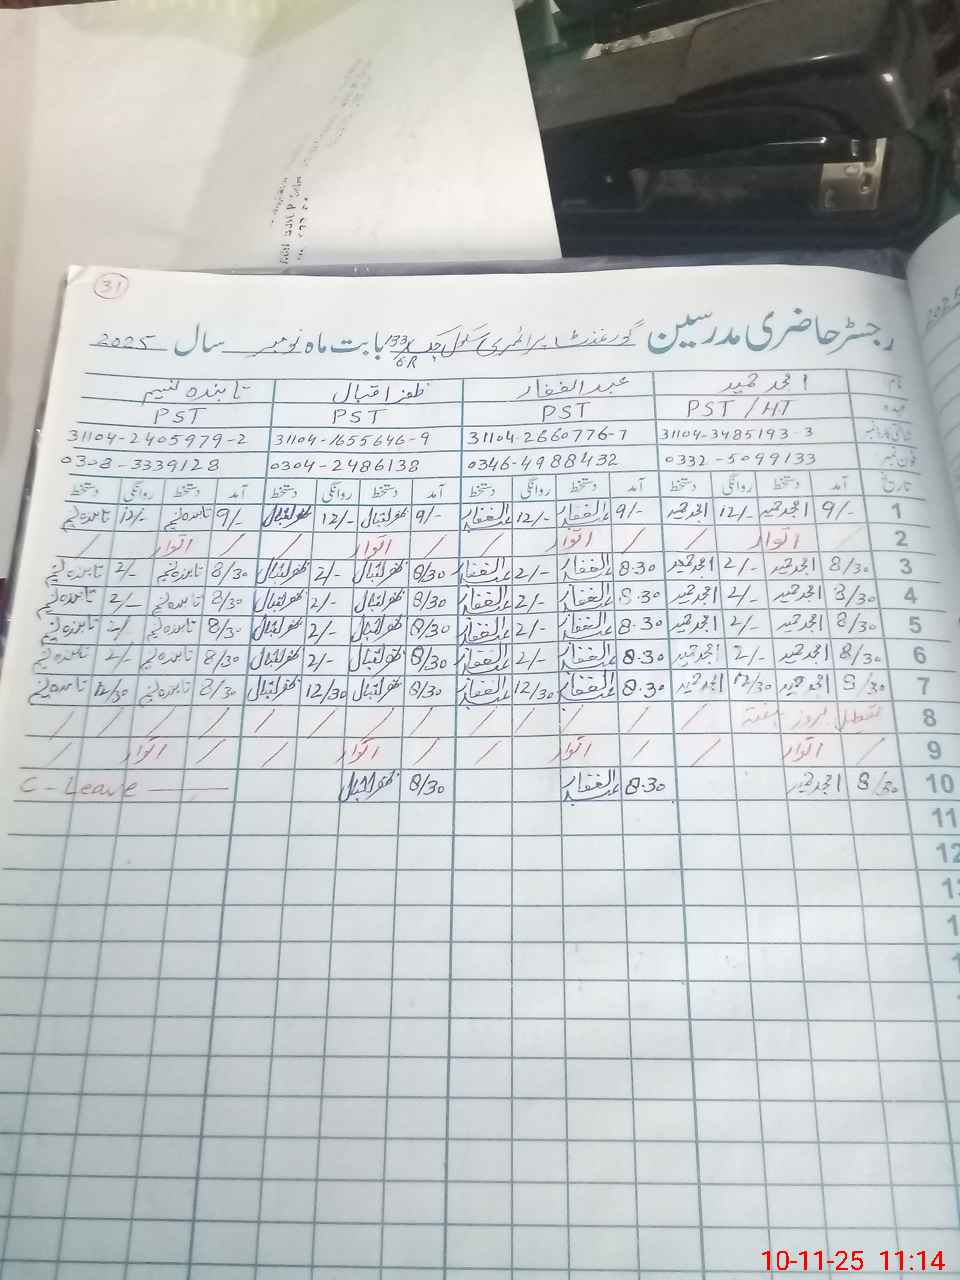 31
رجسٹر حاضری مدرسین گورنمنٹ پرائمری سکول چک 133/6R بابت ماہ نومبر سال 2025
نام امجد حمید عبدالغفار ظفر اقبال تابندہ نسیم
عہدہ PST / HT PST PST PST
شناختی کارڈ نمبر 31104-3485193-3 31104-2660776-7 31104-1655646-9 31104-2405979-2
فون نمبر 0332-5099133 0346-4988432 0304-2486138 0308-3339128
تاریخ آمد دستخط روانگی دستخط آمد دستخط روانگی دستخط آمد دستخط روانگی دستخط آمد دستخط روانگی دستخط
1 9/- امجد حمید 12/- امجد حمید 9/- عبدالغفار 12/- عبدالغفار 9/- ظفر اقبال 12/- ظفر اقبال 9/- تابندہ نسیم 12/- تابندہ نسیم
2 اتوار / / اتوار / / اتوار / / اتوار /
3 8/30 امجد حمید 2/- امجد حمید 8.30 عبدالغفار 2/- عبدالغفار 8/30 ظفر اقبال 2/- ظفر اقبال 8/30 تابندہ نسیم 2/- تابندہ نسیم
4 8/30 امجد حمید 2/- امجد حمید 8.30 عبدالغفار 2/- عبدالغفار 8/30 ظفر اقبال 2/- ظفر اقبال 8/30 تابندہ نسیم 2/- تابندہ نسیم
5 8/30 امجد حمید 2/- امجد حمید 8.30 عبدالغفار 2/- عبدالغفار 8/30 ظفر اقبال 2/- ظفر اقبال 8/30 تابندہ نسیم 2/- تابندہ نسیم
6 8/30 امجد حمید 2/- امجد حمید 8.30 عبدالغفار 2/- عبدالغفار 8/30 ظفر اقبال 2/- ظفر اقبال 8/30 تابندہ نسیم 2/- تابندہ نسیم
7 8/30 امجد حمید 12/30 امجد حمید 8.30 عبدالغفار 12/30 عبدالغفار 8/30 ظفر اقبال 12/30 ظفر اقبال 8/30 تابندہ نسیم 12/30 تابندہ نسیم
8 تعطیل بروز ہفتہ / / / / / / / / / / / / /
9 / اتوار / / / اتوار / / / اتوار / / / اتوار /
10 8/30 امجد حمید 8.30 عبدالغفار 8/30 ظفر اقبال C-Leave
11
12
10-11-25 11:14